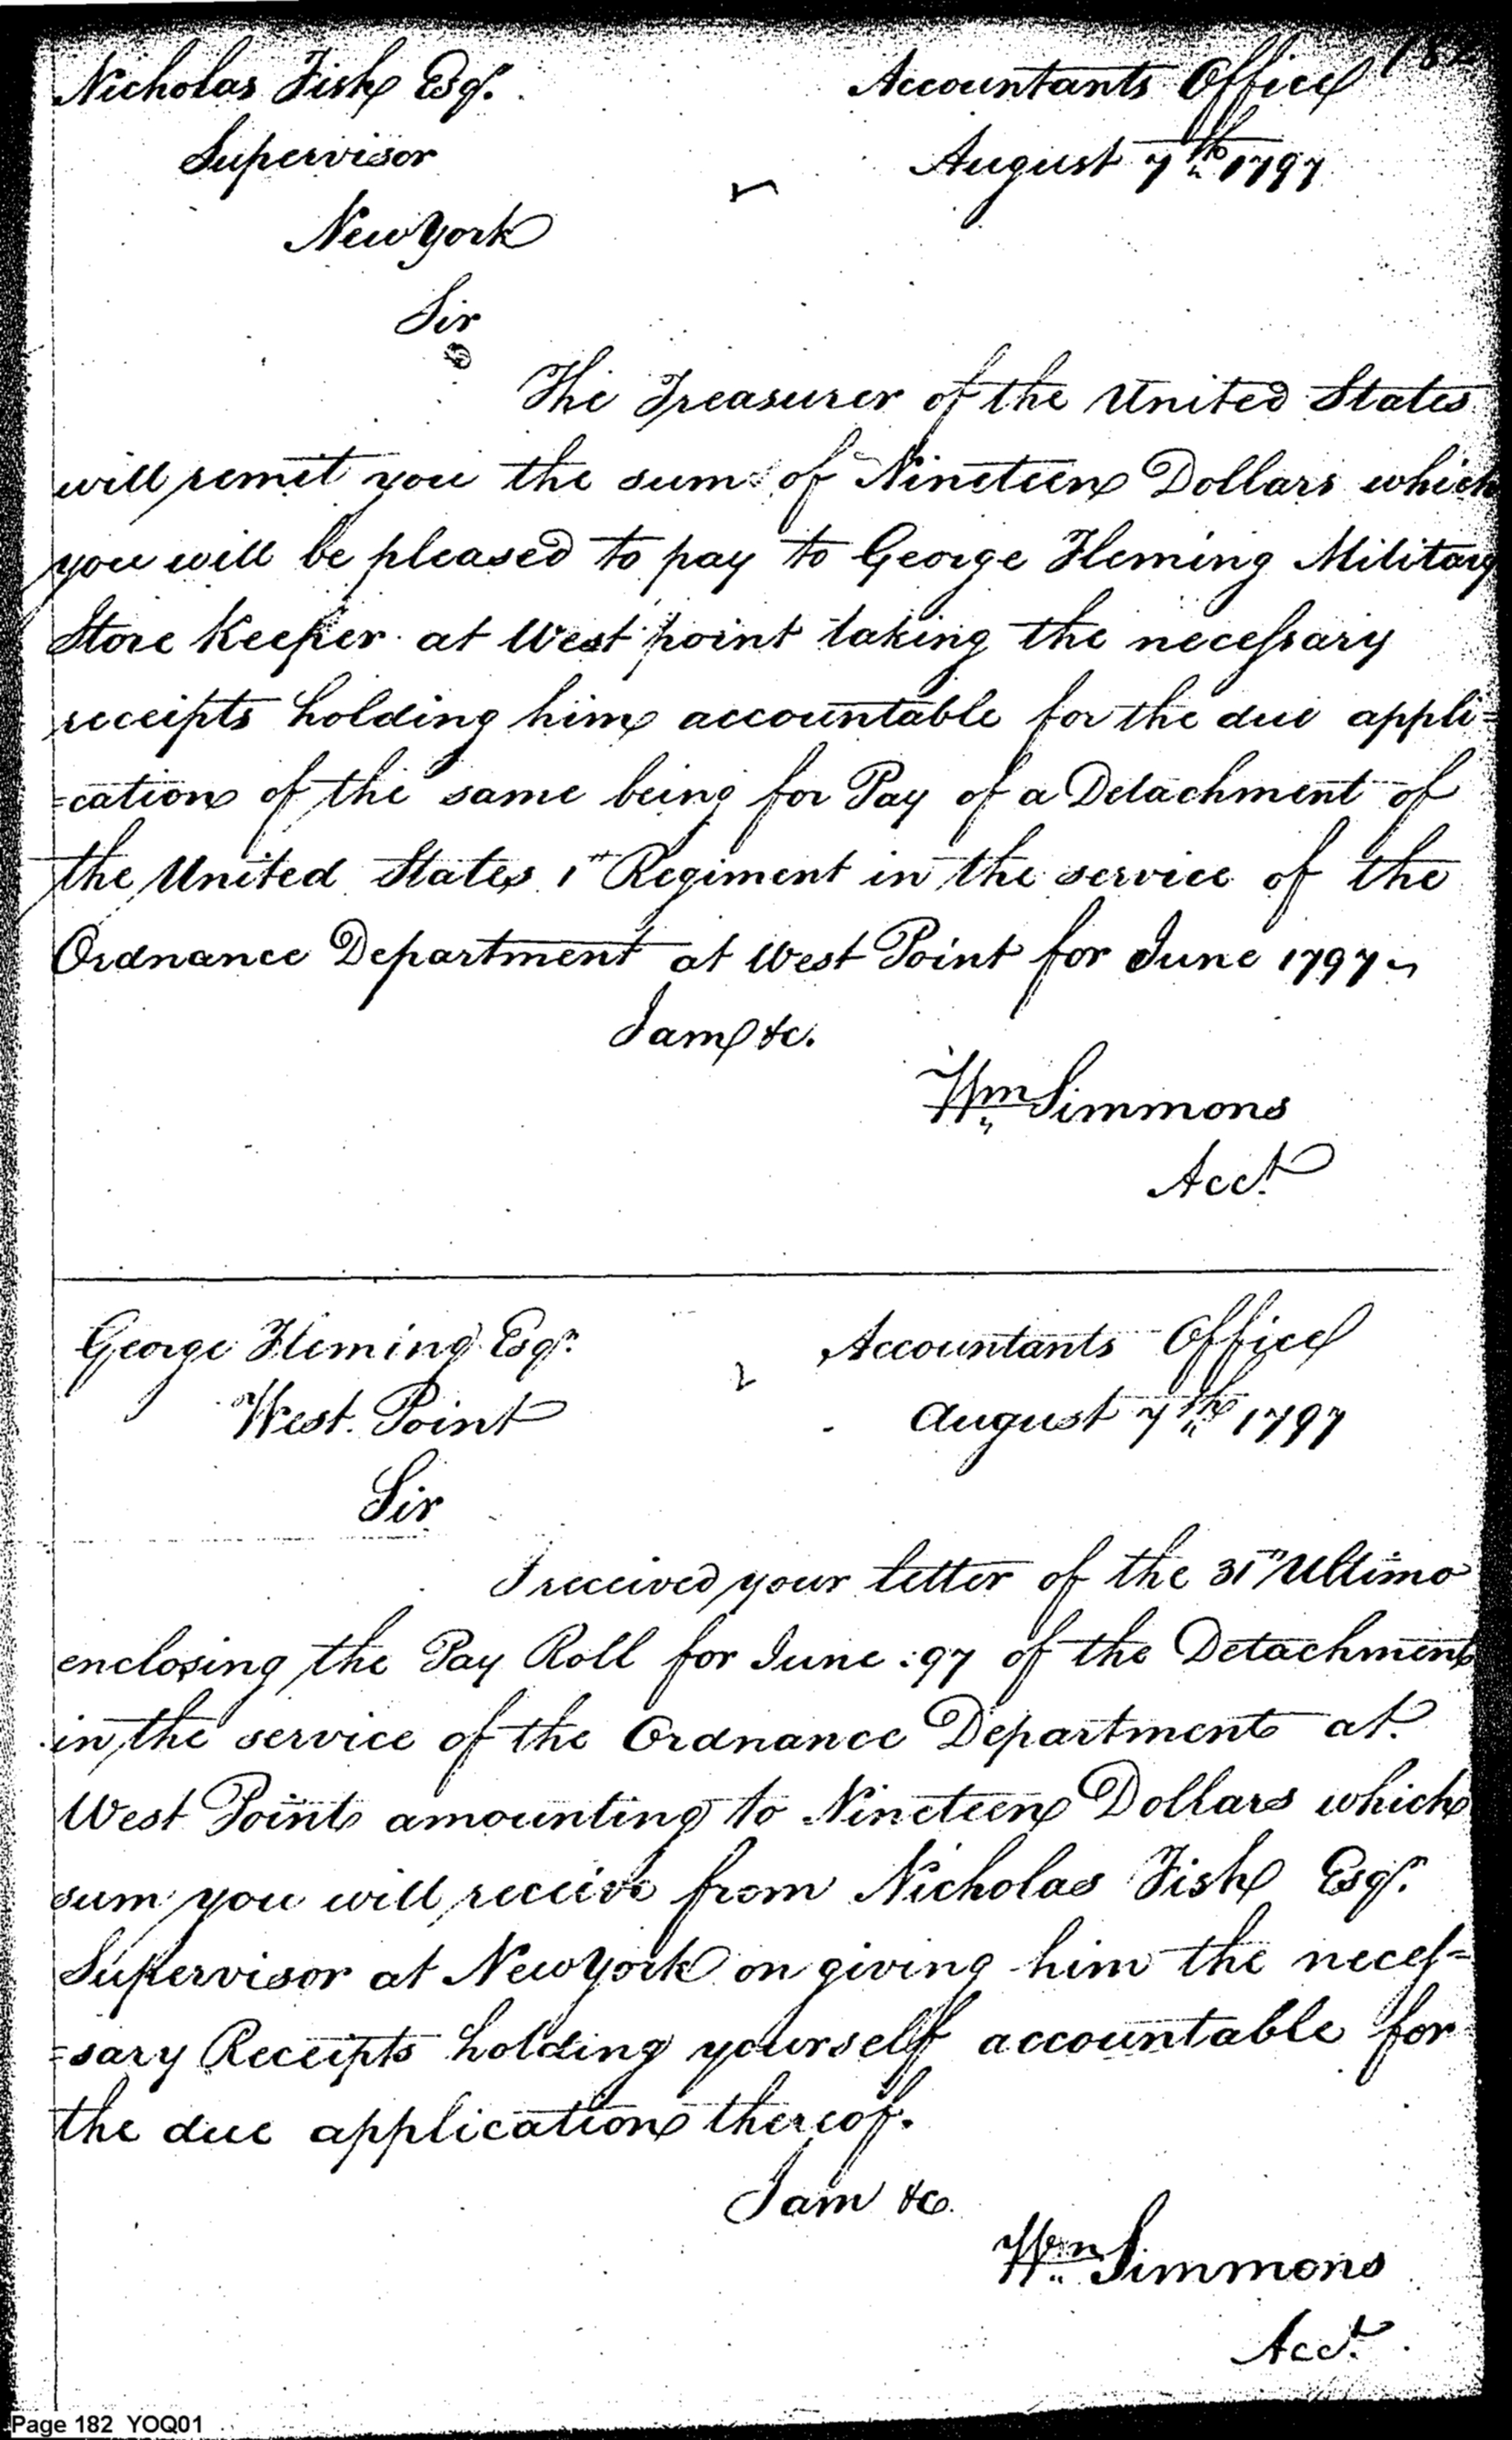 182
Nicholas Fish Esqr.
Accountants Office
Supervisor
August 7th 1797
New York
Sir
The Treasurer of the United States
will remit you the sum of Nineteen Dollars which
you will be pleased to pay to George Fleming Military
Store Keeper at West point taking the necessary
receipts holding him accountable for the due appli=
=cation of the same being for Pay of a Detachment of
the United States 1st Regiment in the service of the
Ordnance Department at West Point for June 1797
I am &c.
Wm Simmons
Acct.
George Fleming Esqr.
Accountants Office
West Point
August 7th 1797
Sir
I received your letter of the 31st Ultimo
enclosing the Pay Roll for June :97 of the Detachment
in the service of the Ordnance Department at
West Point amounting to Nineteen Dollars which
sum you will receive from Nicholas Fish Esqr.
Supervisor at New York on giving him the neces=
=sary Receipts holding yourself accountable for
the due application thereof.
I am &c.
Wm Simmons
Acct.
Page 182 YOQ01